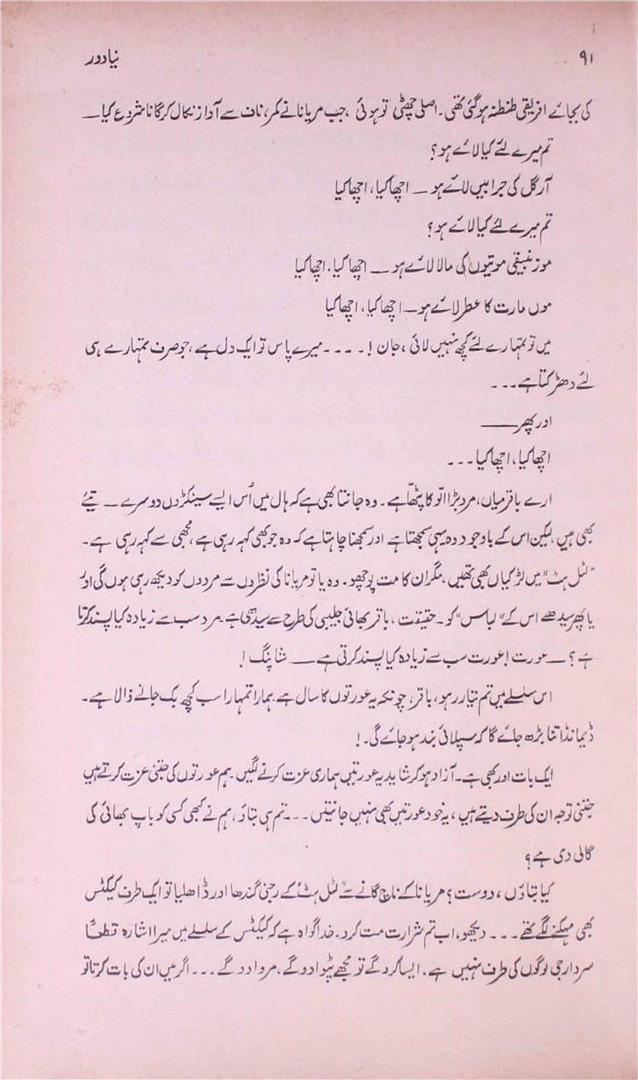 ۹۱ نیا دور
کی بجائے افریقی طنطنہ ہو گئی تھی۔ اصلی چھٹی تو ہوئی، جب مریانا نے کمر، ناف سے آواز نکال کر گانا شروع کیا۔
تم میرے لئے کیا لائے ہو؟
آرگل کی جرابیں لائے ہو ــ اچھا کیا، اچھا کیا
تم میرے لئے کیا لائے ہو؟
موزنبیقی موتیوں کی مالا لائے ہو ــ اچھا کیا، اچھا کیا
موں مارت کا عطر لائے ہو ــ اچھا کیا، اچھا کیا
میں تو تمہارے لئے کچھ نہیں لائی، جان! ۔۔۔۔ میرے پاس تو ایک دل ہے، جو صرف تمہارے ہی
لئے دھڑکتا ہے ۔۔۔
اور پھر ــــ
اچھا کیا، اچھا کیا ۔۔۔
ارے باقر میاں، مرد بڑا الو کا پٹھا ہے۔ وہ جانتا بھی ہے کہ ہال میں اُس ایسے سینکڑوں دوسرے ــ تیئے
بھی ہیں، لیکن اس کے باوجود وہ یہی سمجھتا ہے اور سمجھنا چاہتا ہے کہ وہ جو بھی کہہ رہی ہے، مجھی سے کہہ رہی ہے۔
"لٹل ہٹ" میں لڑکیاں بھی تھیں، مگر ان کا مت پوچھو۔ وہ یا تو مریانا کی نظروں سے مردوں کو دیکھ رہی ہوں گی اور
یا پھر سیدھے اس کے "لباس" کو۔ حقیقت، باقر بھائی جلیبی کی طرح سے سیدھی ہے۔ مرد سب سے زیادہ کیا پسند کرتا
ہے؟ ــ عورت! عورت سب سے زیادہ کیا پسند کرتی ہے ــــ شاپنگ!
اس سلسلے میں تم تیار رہو، باقر، چونکہ یہ عورتوں کا سال ہے۔ ہمارا تمہارا سب کچھ بک جانے والا ہے۔
ڈیمانڈ اتنا بڑھ جائے گا کہ سپلائی بند ہو جائے گی۔!
ایک بات اور بھی ہے۔ آزاد ہو کر شاید یہ عورتیں ہماری عزت کرنے لگیں۔ ہم عورتوں کی جتنی عزت کرتے ہیں
جتنی توجہ ان کی طرف دیتے ہیں، یہ خود عورتیں بھی نہیں جانتیں ۔۔۔ تم ہی بتاؤ، ہم نے کبھی کسی کو باپ بھائی کی
گالی دی ہے؟
کیا بتاؤں، دوست؟ مریانا کے ناچ گانے سے "لٹل ہٹ" کے رجنی گندھا اور ڈاھلیا تو ایک طرف کیکٹس
بھی مہکنے لگے تھے ۔۔۔ دیکھو، اب تم شرارت مت کرد۔ خدا گواہ ہے کہ کیکٹس کے سلسلے میں میرا اشارہ قطعاً
سردار جی لوگوں کی طرف نہیں ہے۔ ایسا کرو گے تو مجھے پٹوا دو گے، مروا دو گے ۔۔۔ اگر میں ان کی بات کرتا تو